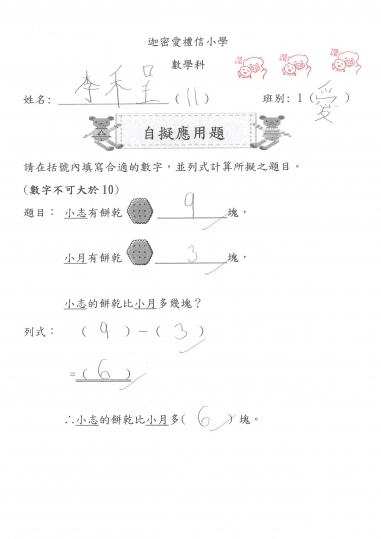 迦密愛禮信小學
數學科
姓名: 李禾呈 (11) 班別: 1 (愛)
自擬應用題
請在括號內填寫合適的數字，並列式計算所擬之題目。
(數字不可大於 10)
題目： 小志有餅乾 9 塊，
小月有餅乾 3 塊，
小志的餅乾比小月多幾塊？
列式： ( 9 ) － ( 3 )
= ( 6 )
∴小志的餅乾比小月多( 6 ) 塊。